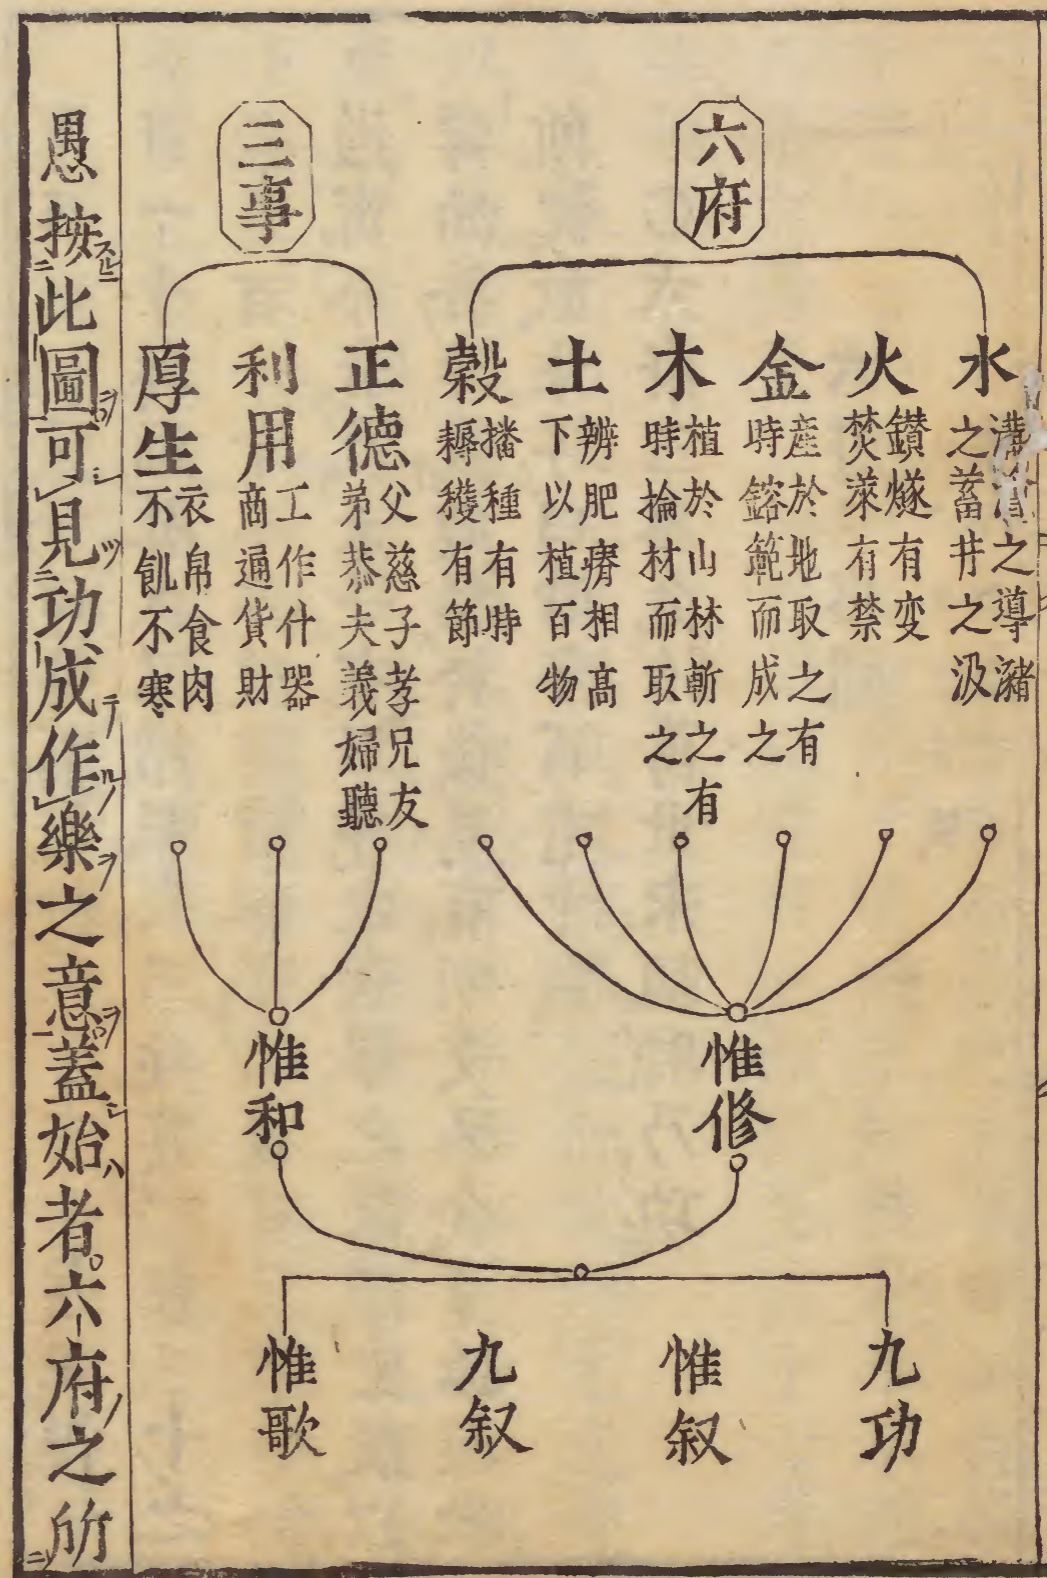 六府
水
溝澮之導瀦
之蓄井之汲
火
鑚燧有变
焚萊有禁
金
産於地取之有
時鎔範而成之
木
植於山林斬之有
時掄材而取之
土
辨肥瘠相高
下以植百物
榖
播種有時
耨穫有節
三事
正德
父慈子孝兄友
弟恭夫義婦聽
利用
工作什器
商通貨財
厚生
衣帛食肉
不飢不寒
惟修
惟和
九功
惟叙
九叙
惟歌
愚按此圖可見功成作樂之意蓋始者六府之所